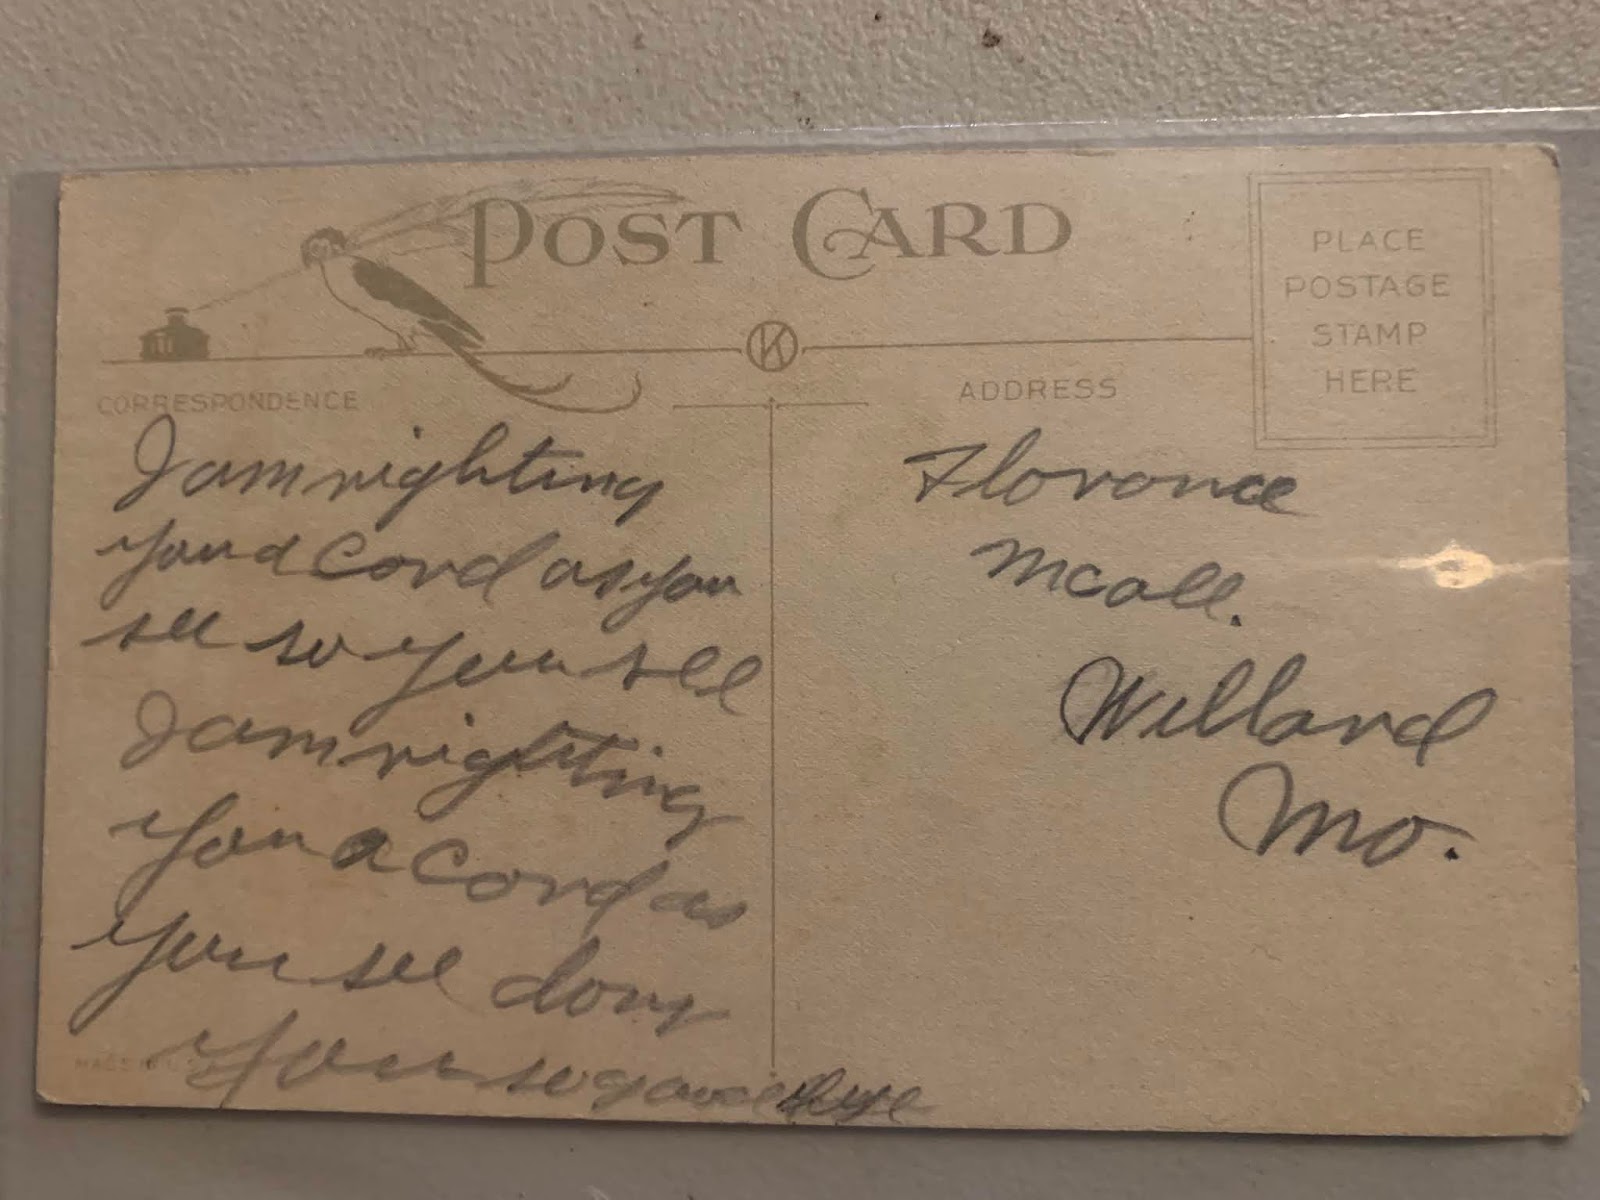 POST CARD
PLACE
POSTAGE
STAMP
HERE
K
CORRESPONDENCE
ADDRESS
I am righting
you a Card as you
see so you see
I am righting
you a Card as
you see dony
you so goodbye
Florance
McAll.
Willard
Mo.
MADE IN U.S.